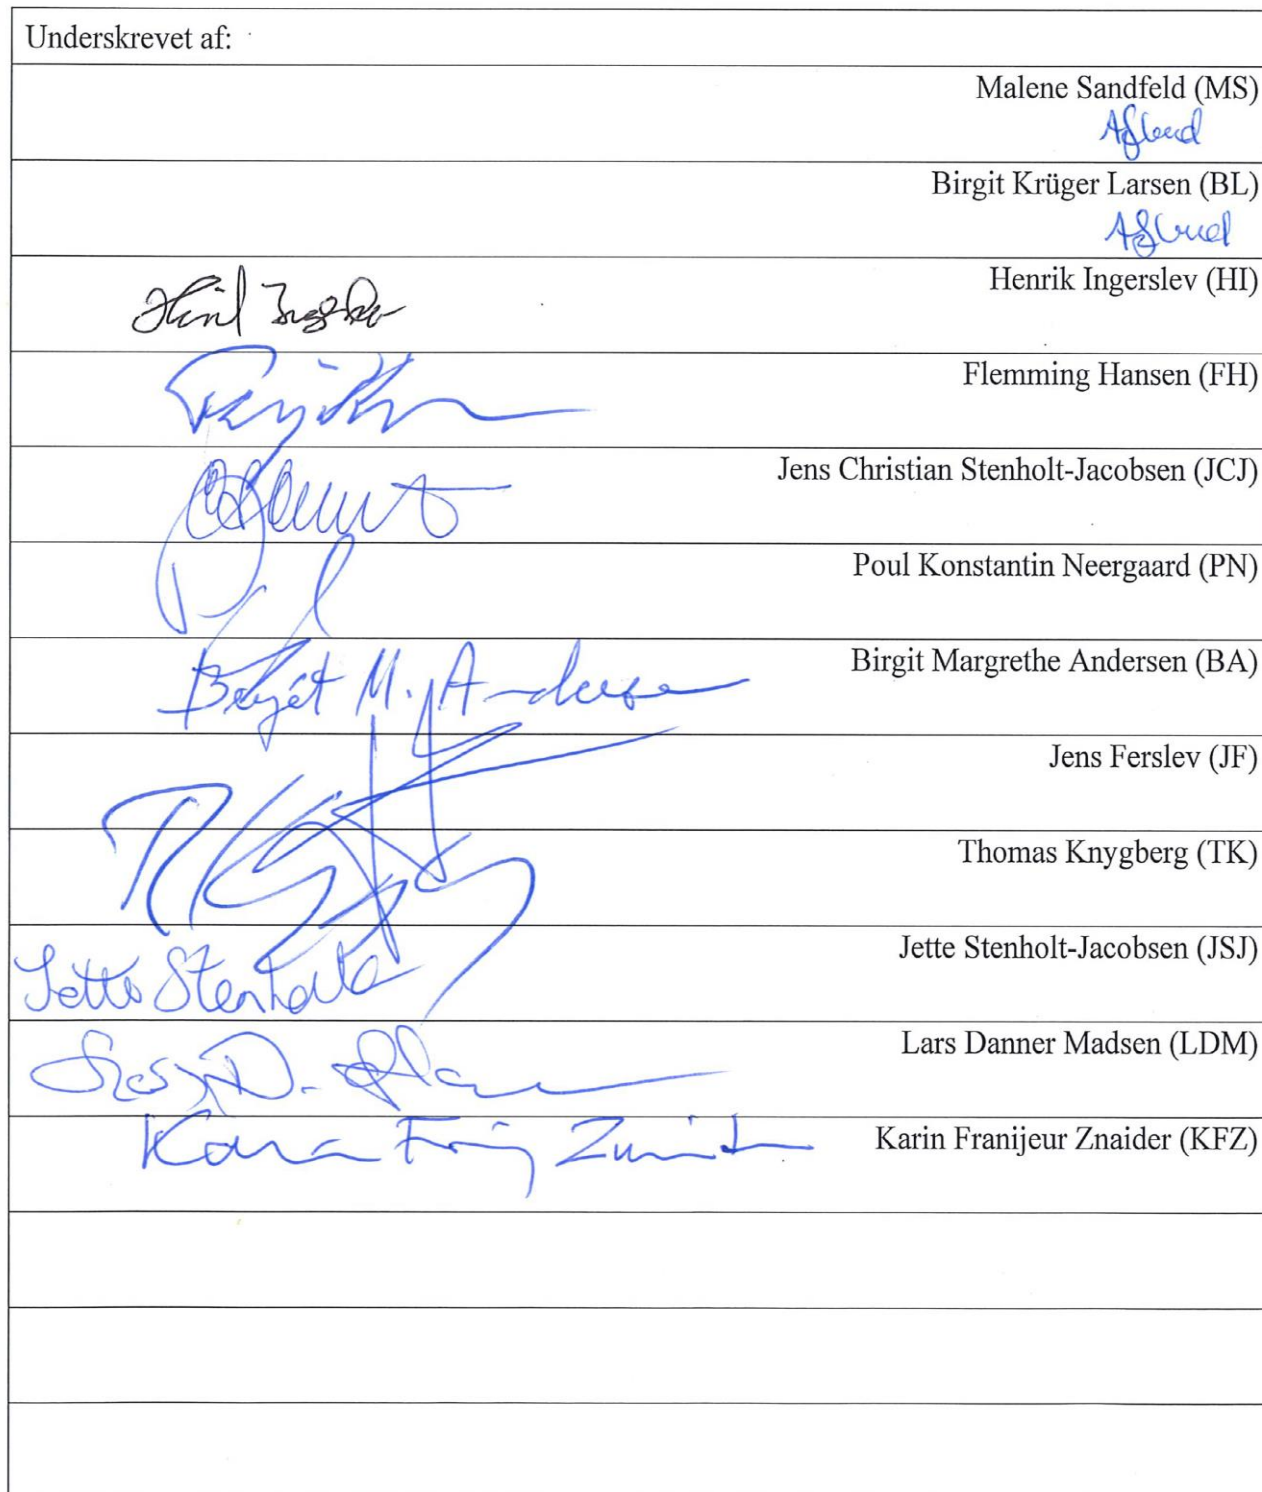 Underskrevet af:
Malene Sandfeld (MS)
Afbud
Birgit Krüger Larsen (BL)
Afbud
Henrik Ingerslev (HI)
Flemming Hansen (FH)
Jens Christian Stenholt-Jacobsen (JCJ)
Poul Konstantin Neergaard (PN)
Birgit Margrethe Andersen (BA)
Birgit M. Andersen
Jens Ferslev (JF)
Thomas Knygberg (TK)
Jette Stenholt-Jacobsen (JSJ)
Jette Stenholt
Lars Danner Madsen (LDM)
Karin Franijeur Znaider (KFZ)